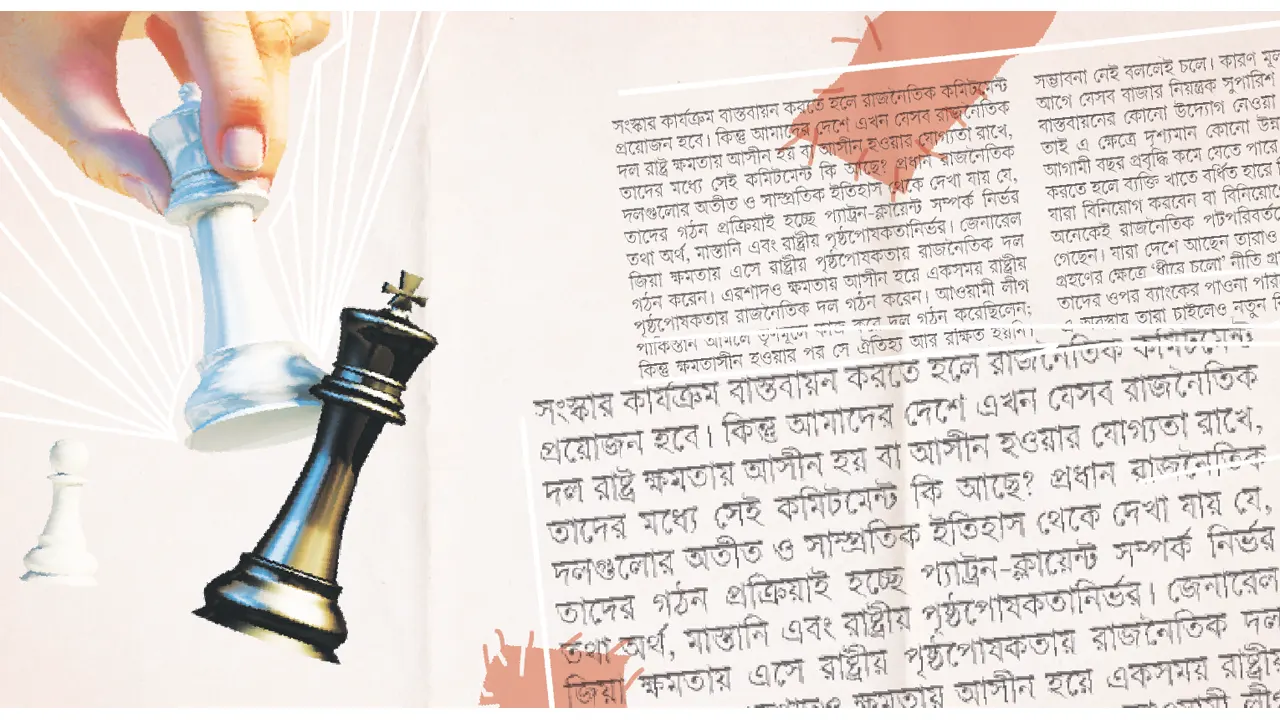 সংস্কার কার্যক্রম বাস্তবায়ন করতে হলে রাজনৈতিক কমিটমেন্ট
প্রয়োজন হবে। কিন্তু আমাদের দেশে এখন যেসব রাজনৈতিক
দল রাষ্ট্র ক্ষমতায় আসীন হয় বা আসীন হওয়ার যোগ্যতা রাখে,
তাদের মধ্যে সেই কমিটমেন্ট কি আছে? প্রধান রাজনৈতিক
দলগুলোর অতীত ও সাম্প্রতিক ইতিহাস থেকে দেখা যায় যে,
তাদের গঠন প্রক্রিয়াই হচ্ছে প্যাট্রন-ক্লায়েন্ট সম্পর্ক নির্ভর
তথা অর্থ, মাস্তানি এবং রাষ্ট্রীয় পৃষ্ঠপোষকতানির্ভর। জেনারেল
জিয়া ক্ষমতায় এসে রাষ্ট্রীয় পৃষ্ঠপোষকতায় রাজনৈতিক দল
গঠন করেন। এরশাদও ক্ষমতায় আসীন হয়ে একসময় রাষ্ট্রীয়
পৃষ্ঠপোষকতায় রাজনৈতিক দল গঠন করেন। আওয়ামী লীগ
পাকিস্তান আমলে তৃণমূলে কাজ করে দল গঠন করেছিলেন;
কিন্তু ক্ষমতাসীন হওয়ার পর সে ঐতিহ্য আর রক্ষিত হয়নি।
সম্ভাবনা নেই বললেই চলে। কারণ
আগে যেসব বাজার নিয়ন্ত্রক সুপারিশ
বাস্তবায়নের কোনো উদ্যোগ নেওয়া
তাই এ ক্ষেত্রে দৃশ্যমান কোনো
আগামী বছর প্রবৃদ্ধি কমে যেতে পারে
করতে হলে ব্যক্তি খাতে বর্ধিত হারে
যারা বিনিয়োগ করবেন বা
অনেকেই রাজনৈতিক
গেছেন। যারা দেশে আছেন তারাও
গ্রহণের ক্ষেত্রে 'ধীরে চলো' নীতি
তাদের ওপর ব্যাংকের পাওনা
এ অবস্থায় তারা চাইলেও নতুন
সংস্কার কার্যক্রম বাস্তবায়ন করতে হলে রাজনৈতিক কমিটমেন্ট
প্রয়োজন হবে। কিন্তু আমাদের দেশে এখন যেসব রাজনৈতিক
দল রাষ্ট্র ক্ষমতায় আসীন হয় বা আসীন হওয়ার যোগ্যতা রাখে,
তাদের মধ্যে সেই কমিটমেন্ট কি আছে? প্রধান রাজনৈতিক
দলগুলোর অতীত ও সাম্প্রতিক ইতিহাস থেকে দেখা যায় যে,
তাদের গঠন প্রক্রিয়াই হচ্ছে প্যাট্রন-ক্লায়েন্ট সম্পর্ক নির্ভর
তথা অর্থ, মাস্তানি এবং রাষ্ট্রীয় পৃষ্ঠপোষকতানির্ভর। জেনারেল
জিয়া ক্ষমতায় এসে রাষ্ট্রীয় পৃষ্ঠপোষকতায় রাজনৈতিক দল
ক্ষমতায় আসীন হয়ে একসময় রাষ্ট্রীয়